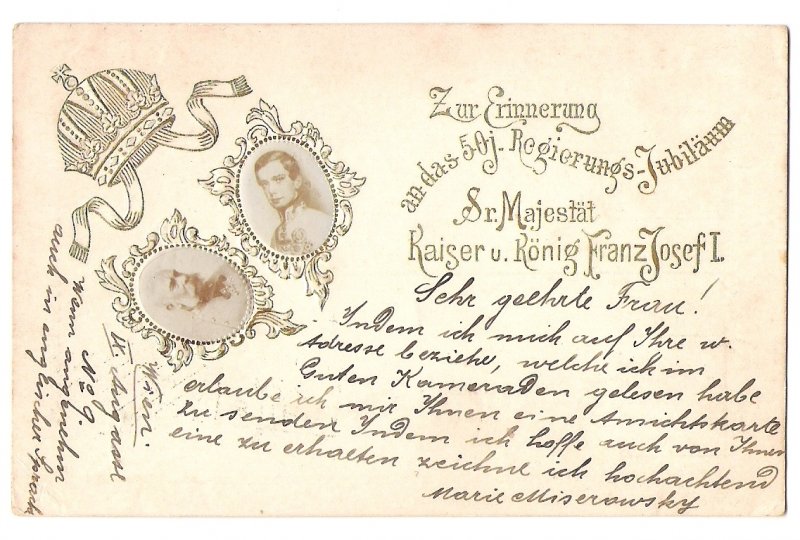 Zur Erinnerung
an das 50j. Regierungs-Jubiläum
Sr. Majestät
Kaiser u. König Franz Josef I.
Sehr geehrte Frau!
Indem ich mich auf Ihre w.
Adresse beziehe, welche ich im
Guten Kameraden gelesen habe
erlaube ich mir Ihnen eine Ansichtskarte
zu senden Indem ich hoffe auch von Ihnen
eine zu erhalten zeichne ich hochachtend
Marie Miserowsky
Wien.
No 9.
Wenn angenehm
auch in englischer Sprach